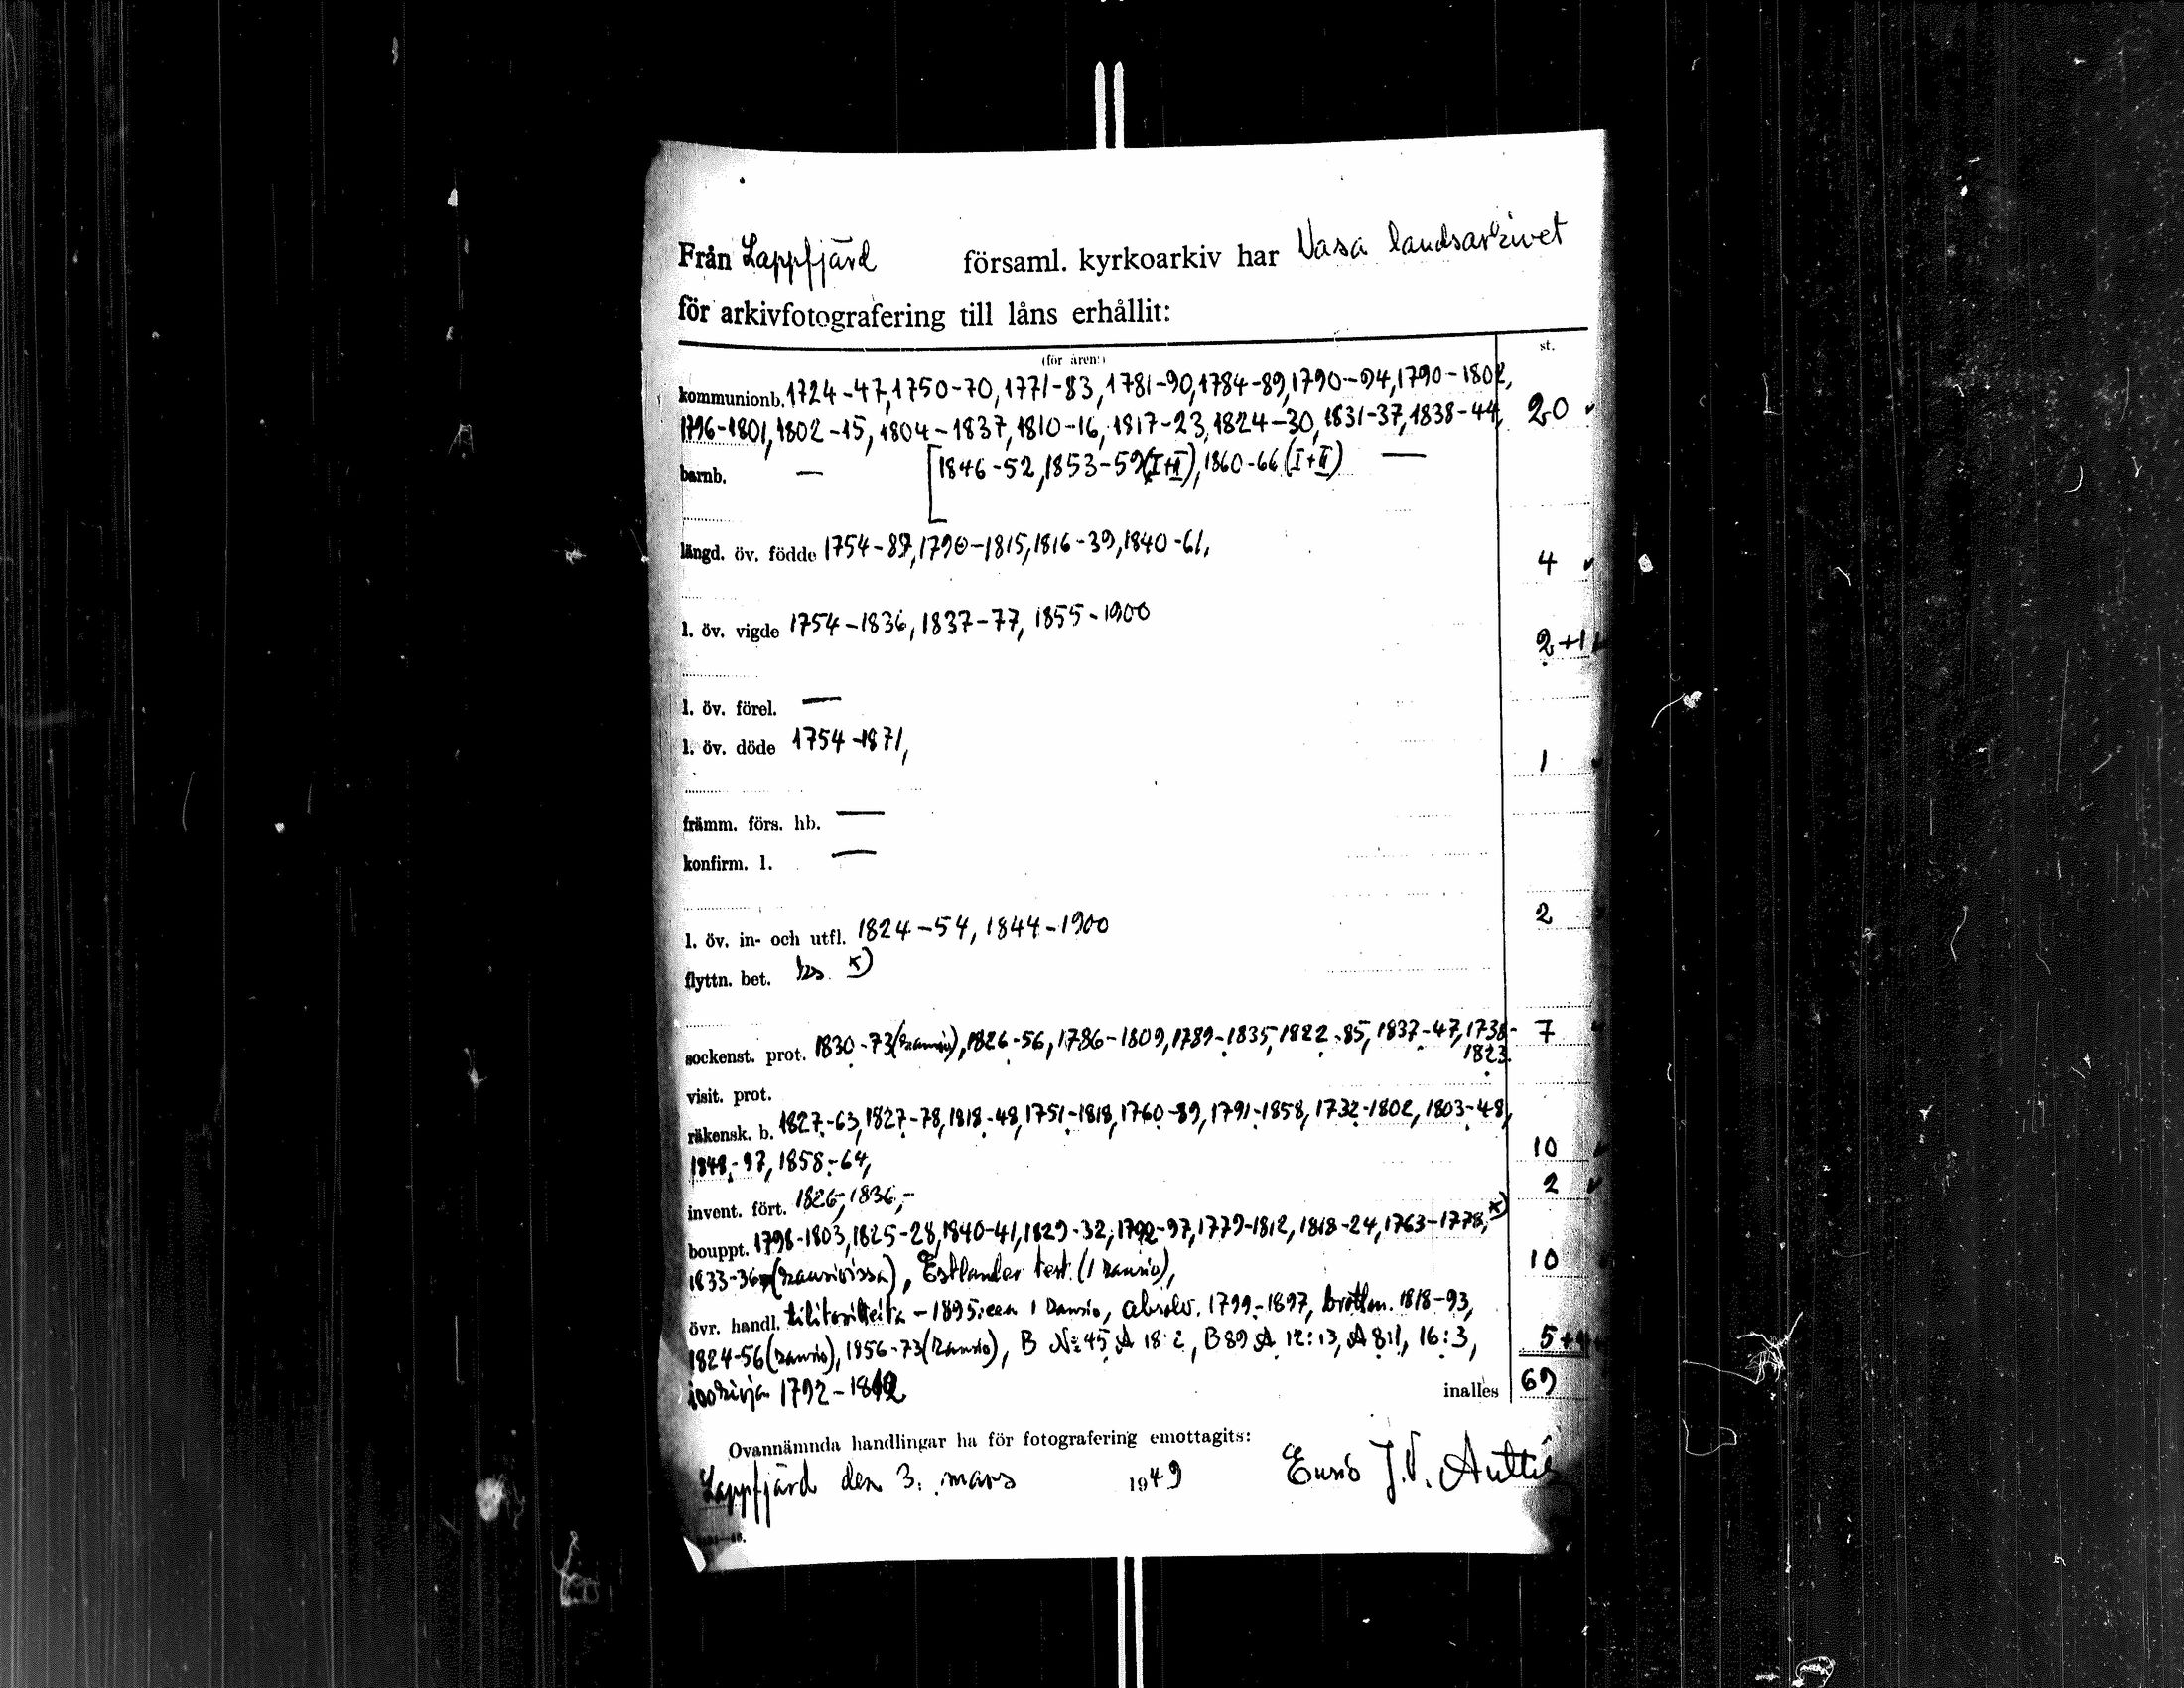 Från Lappfjärd församl. kyrkoarkiv har Vasa landsarkivet
för arkivfotografering till låns erhållit:
(för åren:) st.
kommunionb. 1724-47, 1750-70, 1771-83, 1781-90, 1784-89, 1790-94, 1790-1802,
1796-1801, 1802-15, 1804-1837, 1810-16, 1817-23, 1824-30, 1831-37, 1838-44, 20
barnb. — [1846-52, 1853-59 (I+II), 1860-66 (I+II) —
längd. öv. födde 1754-89, 1790-1815, 1816-39, 1840-61, 4
l. öv. vigde 1754-1836, 1837-77, 1855-1900 2+1
l. öv. förel. —
l. öv. döde 1754-1871, 1
främm. förs. hb. —
konfirm. l. —
l. öv. in- och utfl. 1824-54, 1844-1900 2
flyttn. bet. x)
sockenst. prot. 1830-73 (kansio), 1826-56, 1786-1809, 1789-1835, 1822-85, 1837-47, 1738- 7
1823.
visit. prot.
räkensk. b. 1827-63, 1827-78, 1818-48, 1751-1818, 1760-89, 1791-1858, 1732-1802, 1803-48,
1848-97, 1858-64, 10
invent. fört. 1826, 1836,- 2
bouppt. 1798-1803, 1825-28, 1840-41, 1829-32, 1792-97, 1779-1812, 1818-24, 1763-1778, x)
1833-36 (kansioissa), Estlander test. (1 kansio), 10
övr. handl. tilitositteita -1895:een 1 kansio, absolv. 1799-1897, brottm. 1818-93,
1824-56 (kansio), 1856-73 (kansio), B No 45 A 18:2, B 89 A 12:13, A 8:1, 16:3, 5+4
1792-1812 inalles 69
Ovannämnda handlingar ha för fotografering emottagits:
Lappfjärd den 3. mars 1949 J.V. Anttila